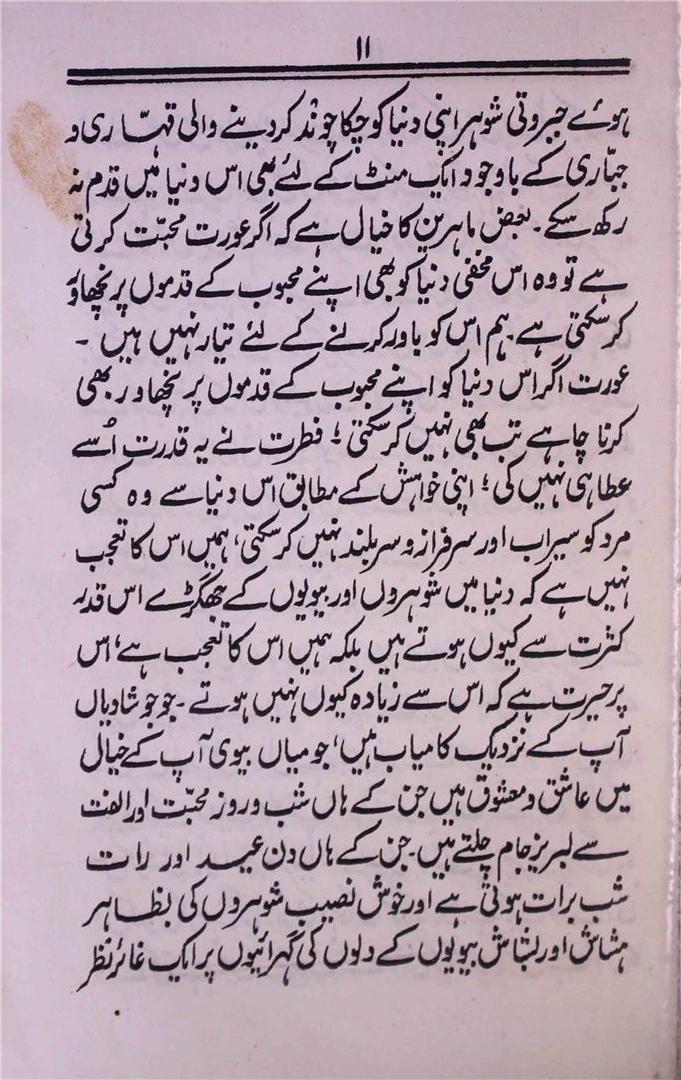 ۱۱
ہوئے جبروتی شوہر اپنی دنیا کو چکا چوند کر دینے والی قہاری و
جباری کے باوجود ایک منٹ کے لئے بھی اس دنیا میں قدم نہ
رکھ سکے۔ بعض ماہرین کا خیال ہے کہ اگر عورت محبت کرتی
ہے تو وہ اس مخفی دنیا کو بھی اپنے محبوب کے قدموں پر نچھاور
کر سکتی ہے۔ ہم اس کو باور کرنے کے لئے تیار نہیں ہیں ۔
عورت اگر اس دنیا کو اپنے محبوب کے قدموں پر نچھاور بھی
کرنا چاہے تب بھی نہیں کر سکتی ؛ فطرت نے یہ قدرت اُسے
عطا ہی نہیں کی ؛ اپنی خواہش کے مطابق اس دنیا سے وہ کسی
مرد کو سیراب اور سرفراز و سربلند نہیں کر سکتی، ہمیں اس کا تعجب
نہیں ہے کہ دنیا میں شوہروں اور بیویوں کے جھگڑے اس قدر
کثرت سے کیوں ہوتے ہیں بلکہ ہمیں اس کا تعجب ہے، اس
پر حیرت ہے کہ اس سے زیادہ کیوں نہیں ہوتے ۔ جو جو شادیاں
آپ کے نزدیک کامیاب ہیں، جو میاں بیوی آپ کے خیال
میں عاشق و معشوق ہیں جن کے ہاں شب و روز محبت اور الفت
سے لبریز جام چلتے ہیں۔ جن کے ہاں دن عید اور رات
شب برات ہوتی ہے اور خوش نصیب شوہروں کی بظاہر
ہشاش اور بشاش بیویوں کے دلوں کی گہرائیوں پر ایک غائر نظر